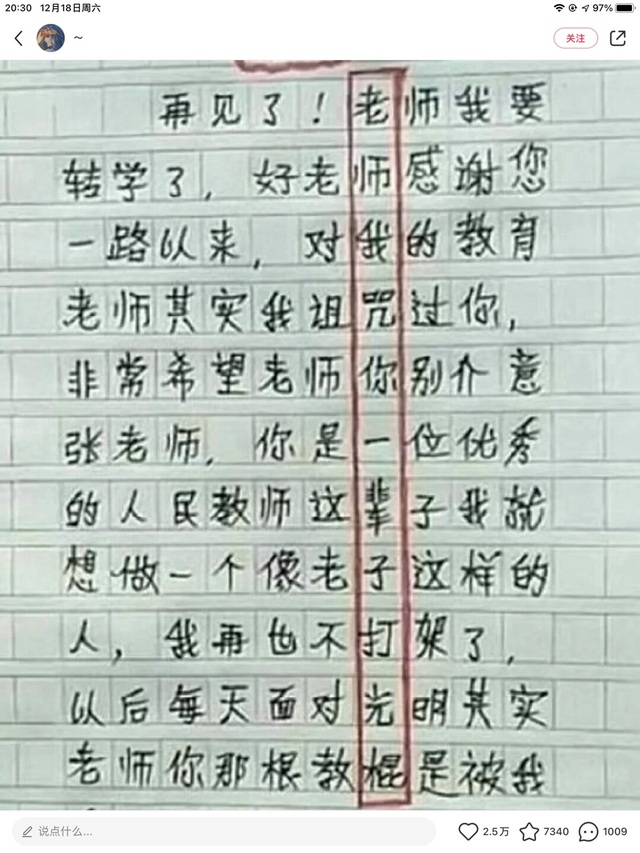 20:30 12月18日周六 97%
~ 关注
再见了！老师我要
转学了，好老师感谢您
一路以来，对我的教育
老师其实我诅咒过你，
非常希望老师你别介意
张老师，你是一位优秀
的人民教师这辈子我就
想做一个像老子这样的
人，我再也不打架了，
以后每天面对光明其实
老师你那根教棍是被我
说点什么... 2.5万 7340 1009